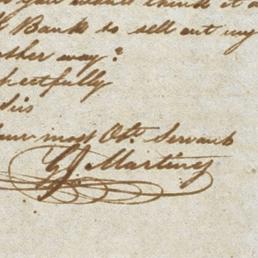 think it
Bank to sell out my
other way?
pectfully
Your most Obt. Servant
G J Martin